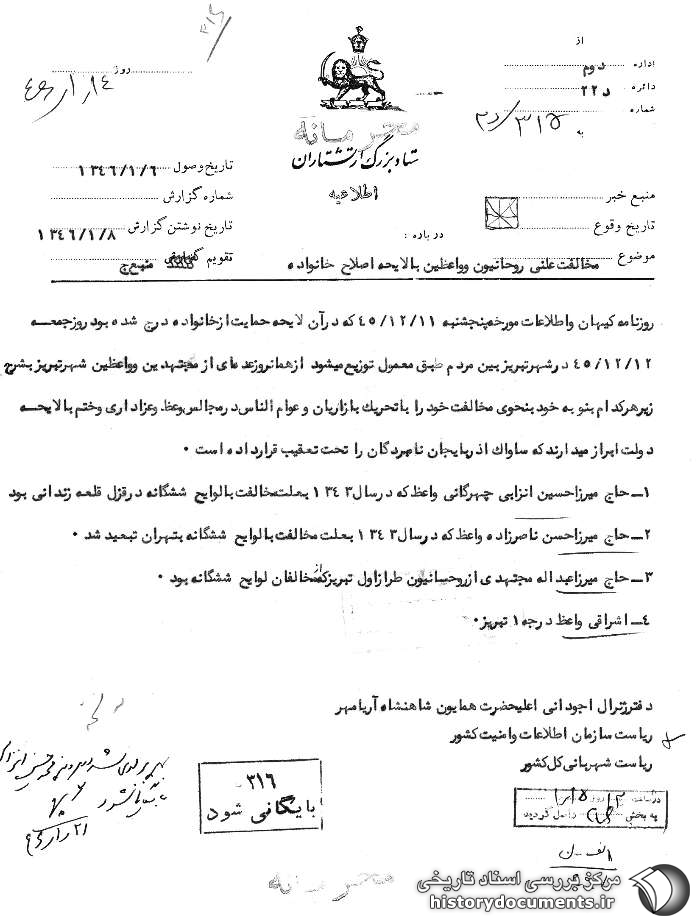 از
اداره دوم
دائره ۲۲د
شماره
به
روز
محرمانه
ستاد بزرگ ارتشتاران
اطلاعیه
منبع خبر
تاریخ وقوع
موضوع
تاریخ وصول ۱۳۴۶/۱/۶
شماره گزارش
تاریخ نوشتن گزارش ۱۳۴۶/۱/۸
تقویم منبع ج
درباره :
مخالفت علنی روحانیون وواعظین بالایحه اصلاح خانواده
روزنامه کیهان واطلاعات مورخه پنجشنبه ۴۵/۱۲/۱۱ که درآن لایحه حمایت ازخانواده درج شده بود روزجمعه
۴۵/۱۲/۱۲ درشهرتبریز بین مردم طبق معمول توزیع میشود ازهمانروز عده‌ای از مجتهدین وواعظین شهرتبریز بشرح
زیر هرکدام بنوبه خود بنحوی مخالفت خود را باتحریک بازاریان و عوام الناس درمجالس وعظ وعزاداری وختم بالایحه
دولت ابراز میدارند که ساواک اذربایجان نامبردگان را تحت تعقیب قرارداده است ۰
۱ــ حاج میرزاحسین انزابی چهرگانی واعظ که درسال ۱۳۴۳ بعلت مخالفت بالوایح ششگانه درقزل قلعه زندانی بود
۲ــ حاج میرزاحسن ناصرزاده واعظ که درسال ۱۳۴۳ بعلت مخالفت بالوایح ششگانه بتهران تبعید شد ۰
۳ــ حاج میرزاعبداله مجتهدی ازروحسانیون طرازاول تبریزکه از مخالفان لوایح ششگانه بود ۰
۴ــ اشراقی واعظ درجه ۱ تبریز۰
دفترژنرال اجودانی اعلیحضرت همایون شاهنشاه آریامهر
ریاست سازمان اطلاعات وامنیت کشور
ریاست شهربانی کل کشور
۳۱۶
بایگانی شود
در ساعت روز
به بخش داخل گردید
محرمانه
مرکز بررسی اسناد تاریخی
historydocuments.ir